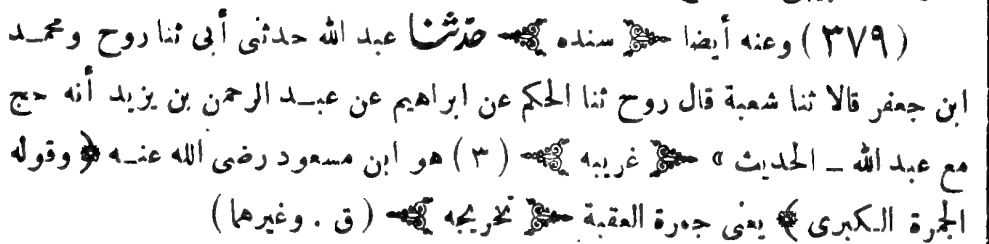 (٣٧٩) وعنه أيضا ﴿ سنده ﴾ حدثنا عبد الله حدثنى أبى ثنا روح ومحمد
ابن جعفر قالا ثنا شعبة قال روح ثنا الحكم عن ابراهيم عن عبد الرحمن بن يزيد أنه حج
مع عبد الله – الحديث » ﴿ غريبه ﴾ (٣) هو ابن مسعود رضى الله عنه ﴿ وقوله
الجمرة الكبرى ﴾ يعنى جمرة العقبة ﴿ تخريجه ﴾ (ق . وغيرهما)